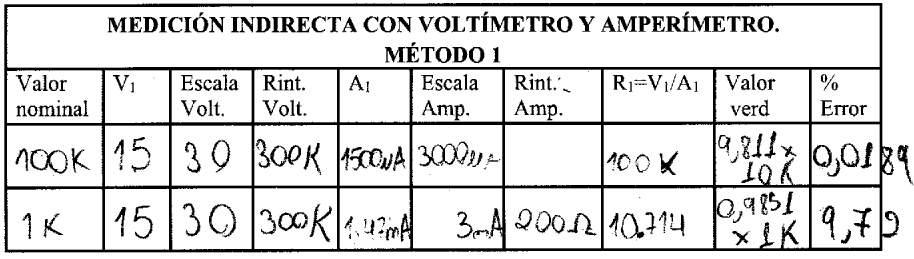 MEDICIÓN INDIRECTA CON VOLTÍMETRO Y AMPERÍMETRO.
MÉTODO 1
Valor nominal V1 Escala Volt. Rint. Volt. A1 Escala Amp. Rint. Amp. R1=V1/A1 Valor verd % Error
100K 15 30 300K 1500uA 3000uA 100K 9,811x 10K 0,0189
1K 15 30 300K 1.47mA 3mA 200Ω 10.714 0,9851 x 1K 9,79